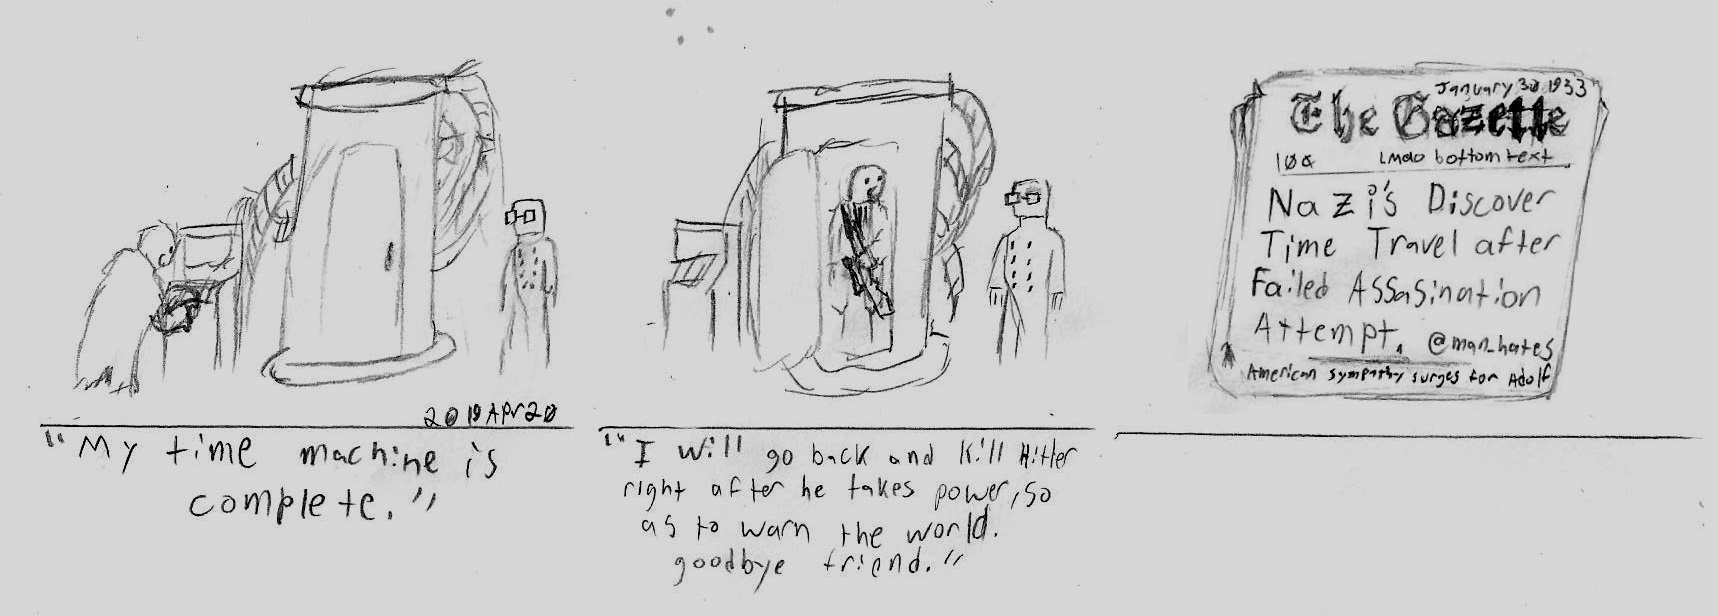 2019Apr20
"My time machine is
complete."
"I will go back and kill Hitler
right after he takes power, so
as to warn the world.
goodbye friend."
January 30 1933
The Gazette
10¢ Lmao bottom text
Nazi's Discover
Time Travel after
Failed Assasination
Attempt. @man_hates
American sympathy surges for Adolf